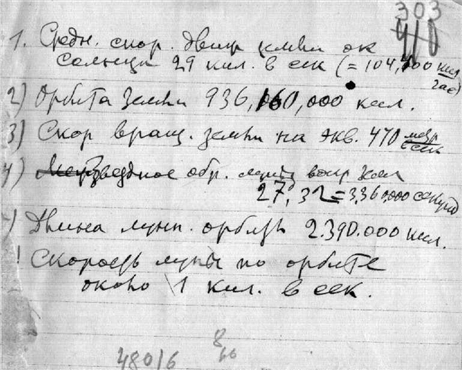 303
410
1. Средн. скор. движ земли ок
Солнца 29 кил. в сек (= 104,400 кил
час)
2) Орбита Земли 936,160,000 кил.
3) Скор вращ. земли на экв. 470 метр
сек
4) Звездное обр. луны вокр Земл
27, 32 = 2,360,000 секунд
) Длина лунн. орбиты 2.390.000 кил.
! Скорость луны по орбите
около 1 кил. в сек.
48016
8/60